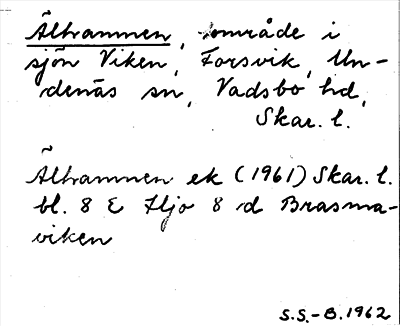 Ältrammen, område i
sjön Viken, Forsvik, Un-
denäs sn, Vadsbo hd,
Skar. l.
Ältrammen ek (1961) Skar. l.
bl. 8 E Hjo 8 d Brasma-
viken
S.S.-B. 1962